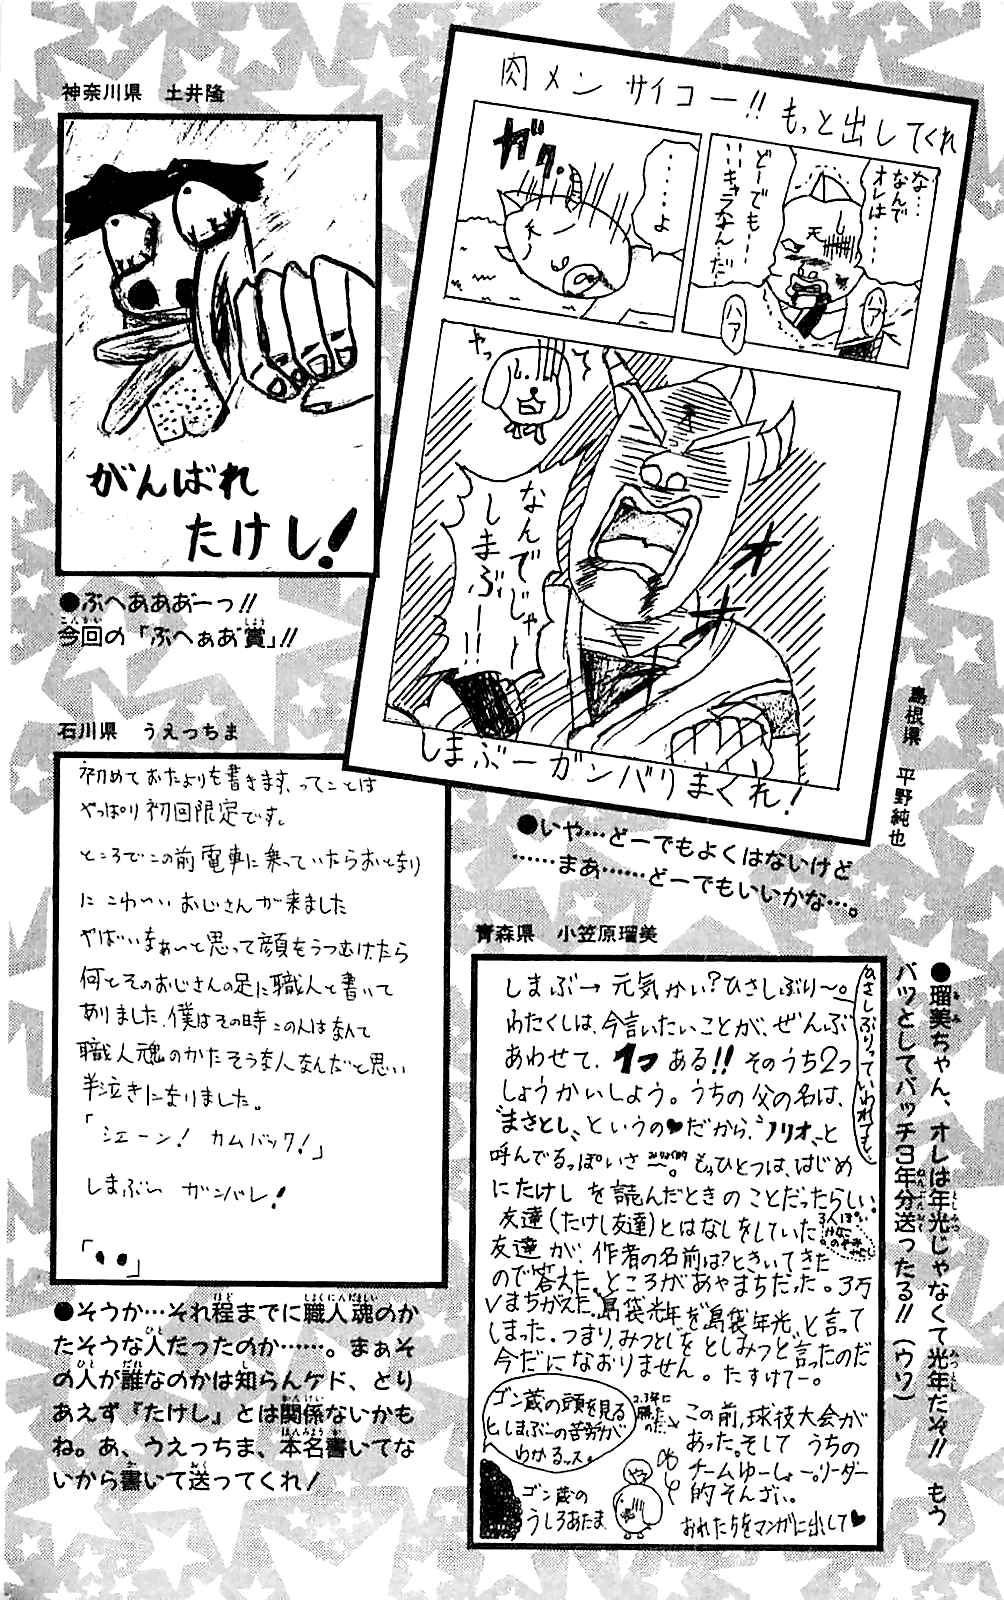 神奈川県　土井隆
がんばれ
たけし！
●ぶへあああーっ!!
今回の「ぶへぁあ賞」!!
肉メン サイコー!! もっと出してくれ
な…
なんで
オレは……
どーでも…
…キャラなんだ…
ハァ
ハァ
……よ
ガク。
やっ
なんでじゃー
しまぶー!!
オ
しまぶーガンバリまくれ！
島根県　平野純也
●いや…どーでもよくはないけど
……まあ……どーでもいいかな…。
石川県　うえっちま
初めておたよりを書きます、ってことは
やっぱり初回限定です。
ところでこの前電車に乗っていたらおとなり
に こわーい おじさんが来ました
やばいなぁ〜と思って顔をうつむけたら
何とそのおじさんの足に職人と書いて
ありました、僕はその時この人はなんて
職人魂のかたそうな人なんだと思い
半泣きになりました。
「シエーン！ カムバック！」
しまぶー ガンバレ！
●そうか…それ程までに職人魂のか
たそうな人だったのか……。まぁそ
の人が誰なのかは知らんケド、とり
あえず『たけし』とは関係ないかも
ね。あ、うえっちま、本名書いてな
いから書いて送ってくれ！
青森県　小笠原瑠美
しまぶー 元気かい？ひさしぶり〜。
ひさしぶりっていわれても。
わたくしは、今言いたいことが、ぜんぶ
あわせて、1つ ある!! そのうち2つ
しょうかいしよう。うちの父の名は、
"まさとし"というの♥だから、"ノリオ"と
呼んでるっぽいさ〜。もひとつは、はじめ
にたけし を読んだときのことだったらしい。
友達（たけし友達）とはなしをしていた
友達が、作者の名前は？ときいてきた
ので答えた。ところがあやまちだった。3万
まちがえた。島袋光年を島袋年光と言って
しまった。つまり、みつとしを としみつと言ったのだ
今だになおりません。たすけてー。
ゴン蔵の頭を見る
としまぶーの苦労が
わかるッス。
ゴン蔵の
うしろあたま
この前、球技大会が
あった。そして うちの
チームゆーしょー。リーダー
的そんざい。
おれたちをマンガに出して♥
●瑠美ちゃん、オレは年光じゃなくて光年だぞ!! もう
バツとしてバッチ3年分送ったる!!（ウソ）